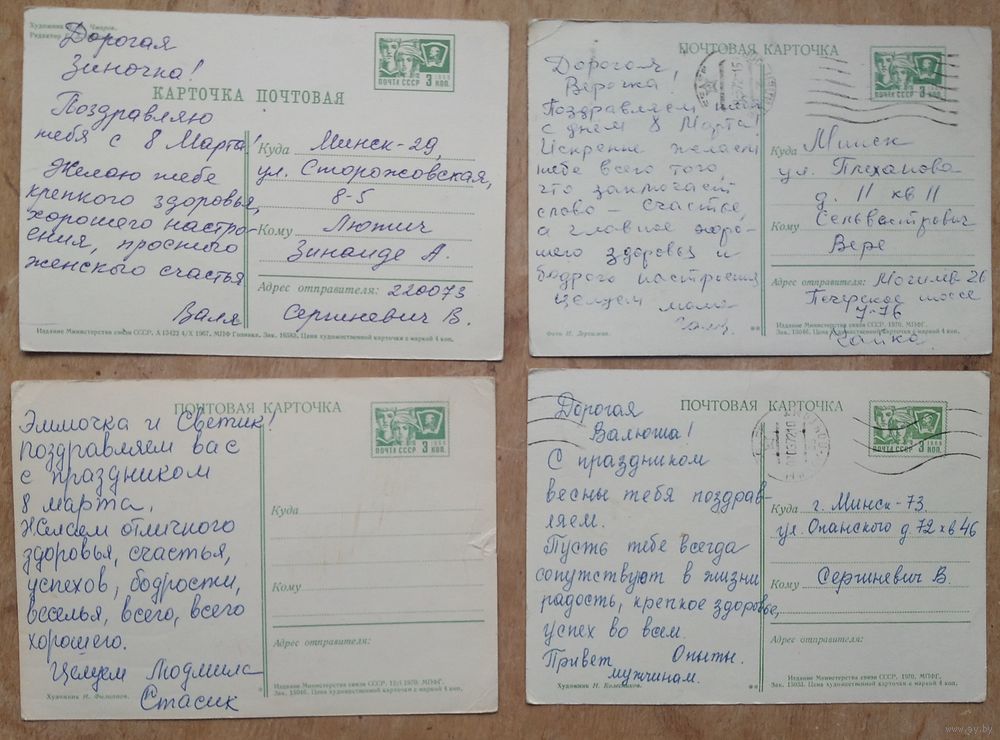 Художник Чмаров.
Редактор
Дорогая
Зиночка!
КАРТОЧКА ПОЧТОВАЯ
ПОЧТА СССР 3 КОП.
Поздравляю
тебя с 8 Марта!
Желаю тебе
крепкого здоровья,
хорошего настро-
ения, простого
женского счастья
Валя
Куда Минск-29,
ул. Сторожовская,
8-5
Кому Лютич
Зинаиде А.
Адрес отправителя: 220073
Сергиневич В.
Издание Министерства связи СССР. X 12422 4/X 1967. МПФ Гознака. Зак. 16582. Цена художественной карточки с маркой 4 коп.
ПОЧТОВАЯ КАРТОЧКА
ПОЧТА СССР 3 КОП.
Дорогая
Верочка!
Поздравляем тебя
с днем 8 Марта!
Искренне желаем
тебе всего того,
что заключает
слово – счастье,
а главное хоро-
шего здоровья и
бодрого настроения
Целуем
Куда Минск
ул. Плеханова
д. 11 кв 11
Кому Сельвестрович
Вере
Адрес отправителя: Могилев-26
шоссе
Чайка.
Издание Министерства связи СССР. 1970. МПФГ.
Зак. 15046. Цена художественной карточки с маркой 4 коп.
ПОЧТОВАЯ КАРТОЧКА
ПОЧТА СССР 3 КОП.
Эммочка и Светик!
поздравляем вас
с праздником
8 марта.
Желаем отличного
здоровья, счастья,
успехов, бодрости,
веселья, всего, всего
хорошего.
Целуем Людмила
Стасик
Художник Н. Филиппов.
Куда
Кому
Адрес отправителя:
Издание Министерства связи СССР. 1970. МПФГ.
Зак. 15046. Цена художественной карточки с маркой 4 коп.
ПОЧТОВАЯ КАРТОЧКА
ПОЧТА СССР 3 КОП.
Дорогая
Валюша!
С праздником
весны тебя поздрав-
ляем.
Пусть тебе всегда
сопутствуют в жизни
радость, крепкое здоровье,
успех во всем.
Привет Опыты.
мужчинам.
Художник Н. Колесников.
Куда г. Минск-73
ул. Опанского д 72 кв 46
Кому Сергиневич В.
Адрес отправителя:
Издание Министерства связи СССР. 1970. МПФГ.
Зак. 15033. Цена художественной карточки с маркой 4 коп.
www.ay.by